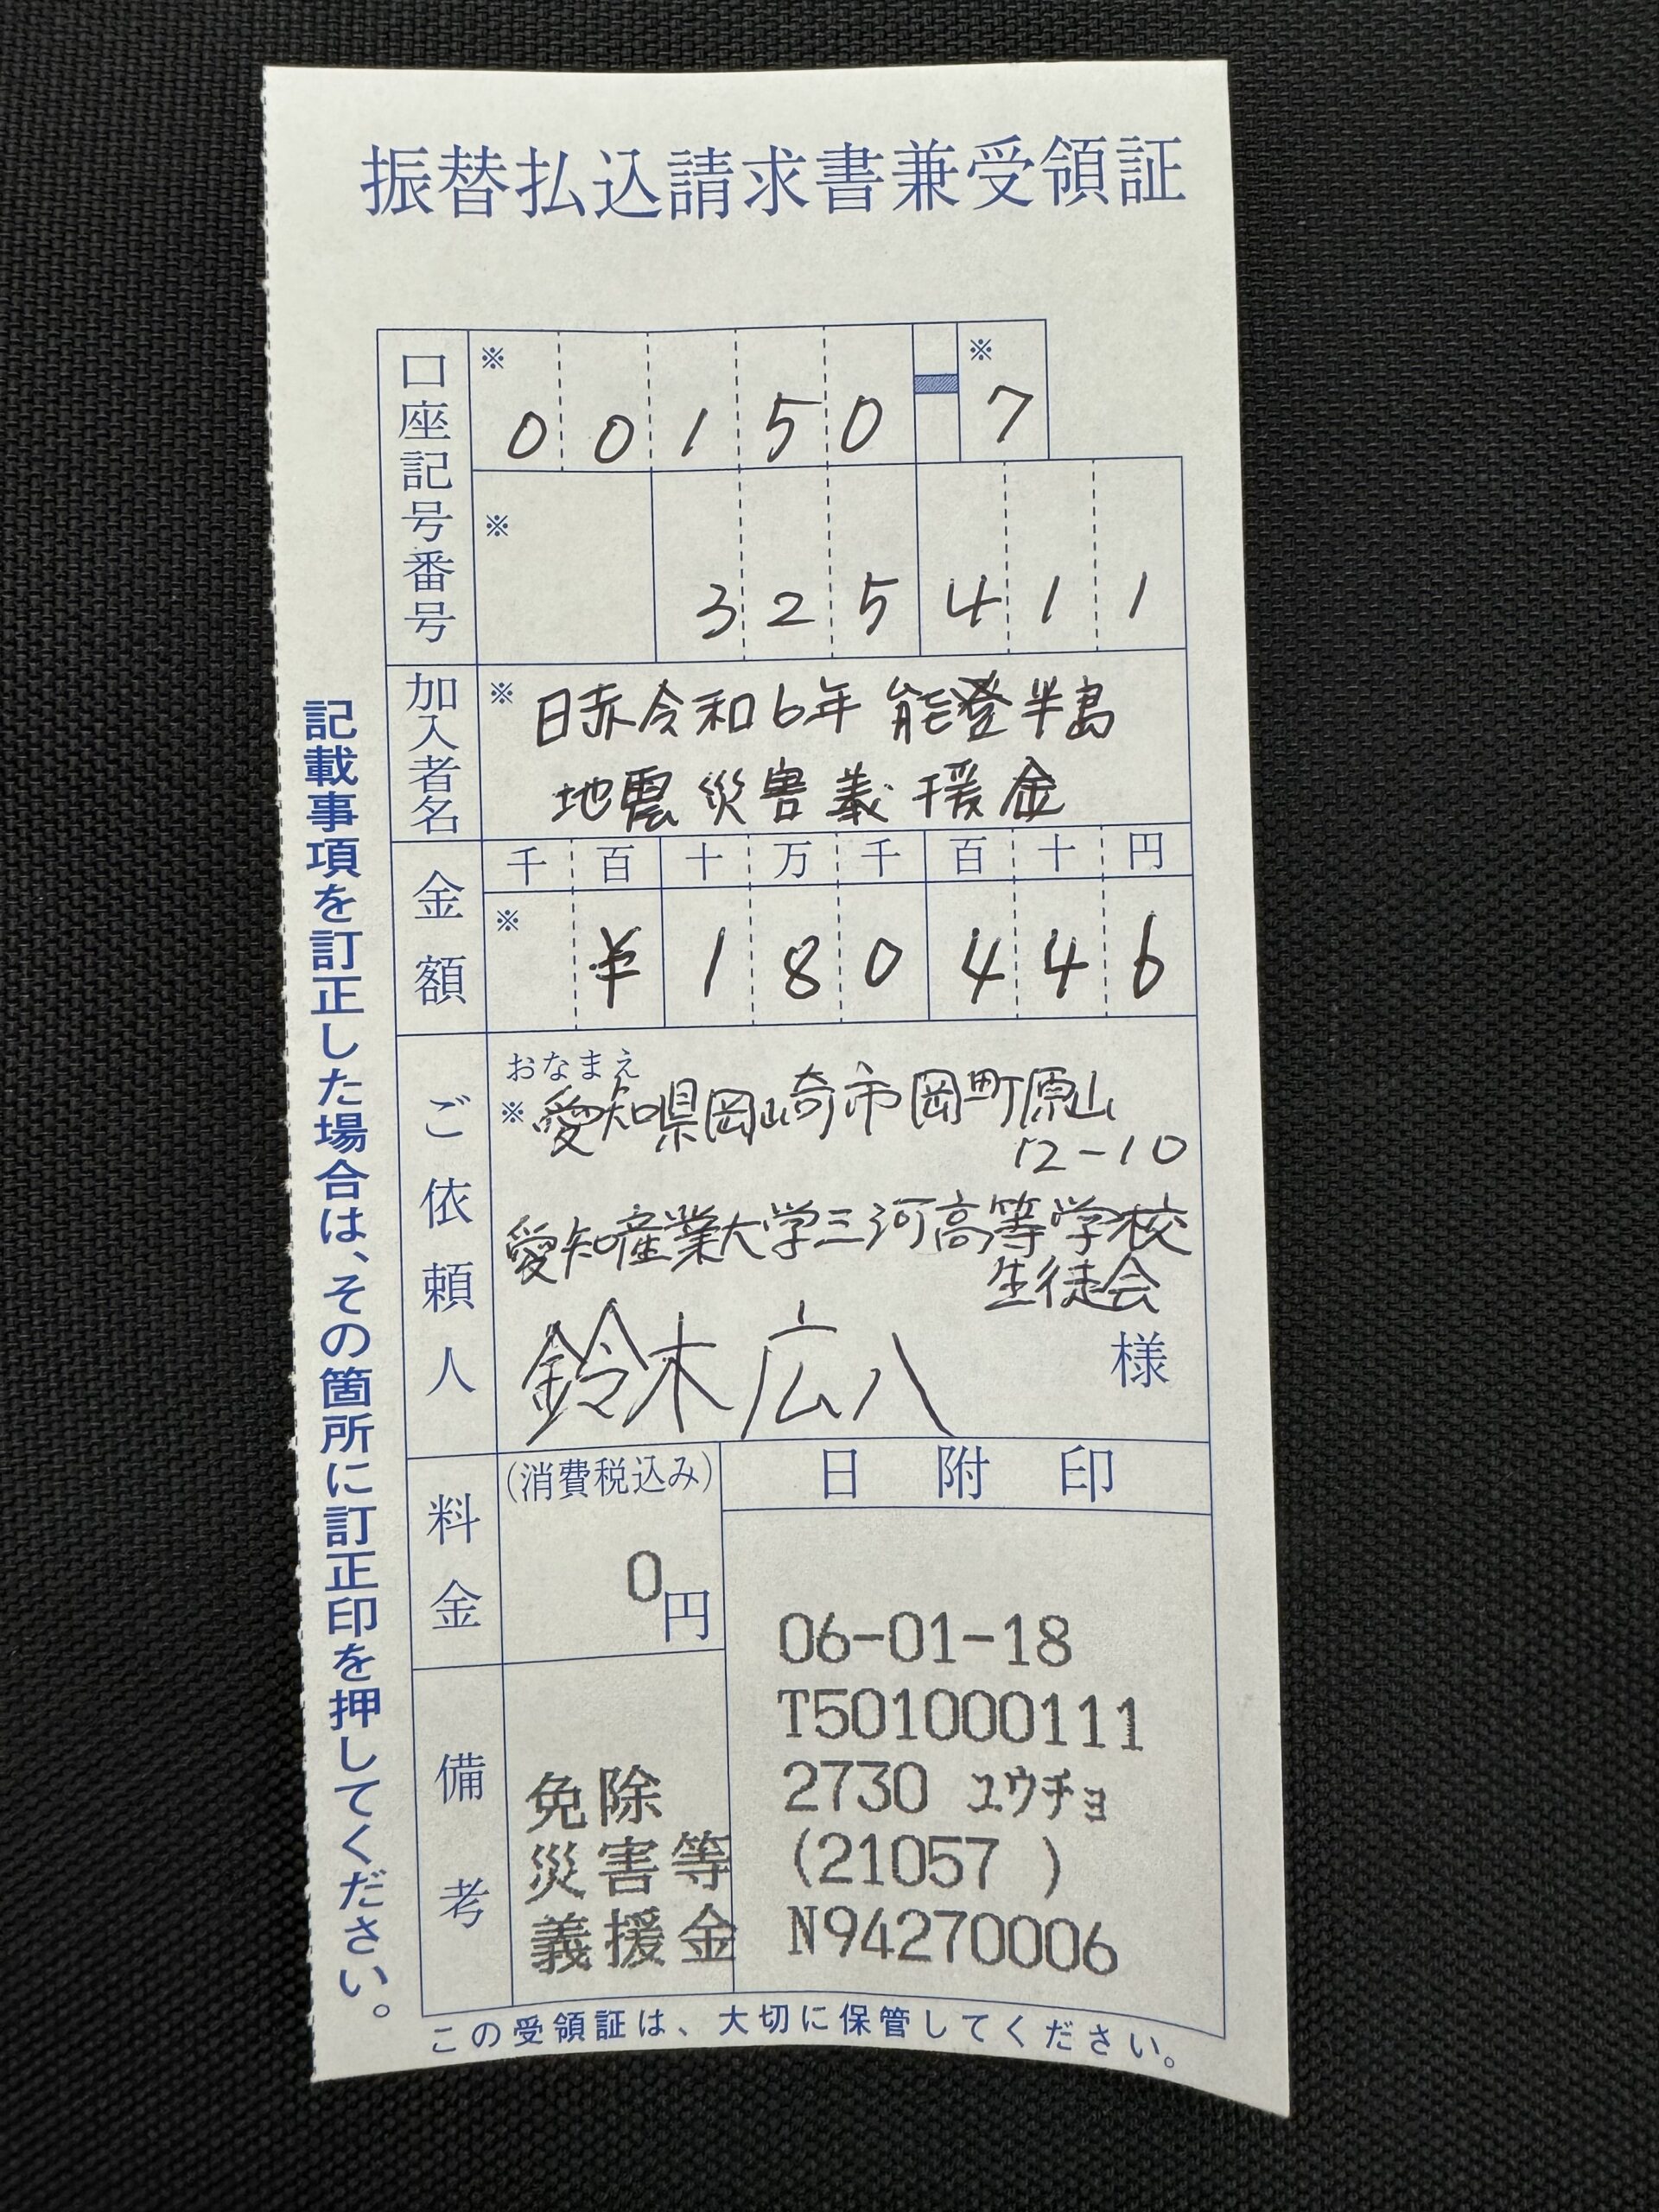 振替払込請求書兼受領証
口座記号番号
※ 00150 - ※ 7
※ 325411
加入者名
※ 日赤令和6年 能登半島
地震災害義援金
金額
千 百 十 万 千 百 十 円
※ ¥180446
ご依頼人
おなまえ
※ 愛知県岡崎市岡町原山
12-10
愛知産業大学三河高等学校
生徒会
鈴木広八 様
料金
(消費税込み)
0円
日附印
06-01-18
T501000111
2730 ユウチョ
(21057 )
N94270006
備考
免除
災害等
義援金
この受領証は、大切に保管してください。
記載事項を訂正した場合は、その箇所に訂正印を押してください。